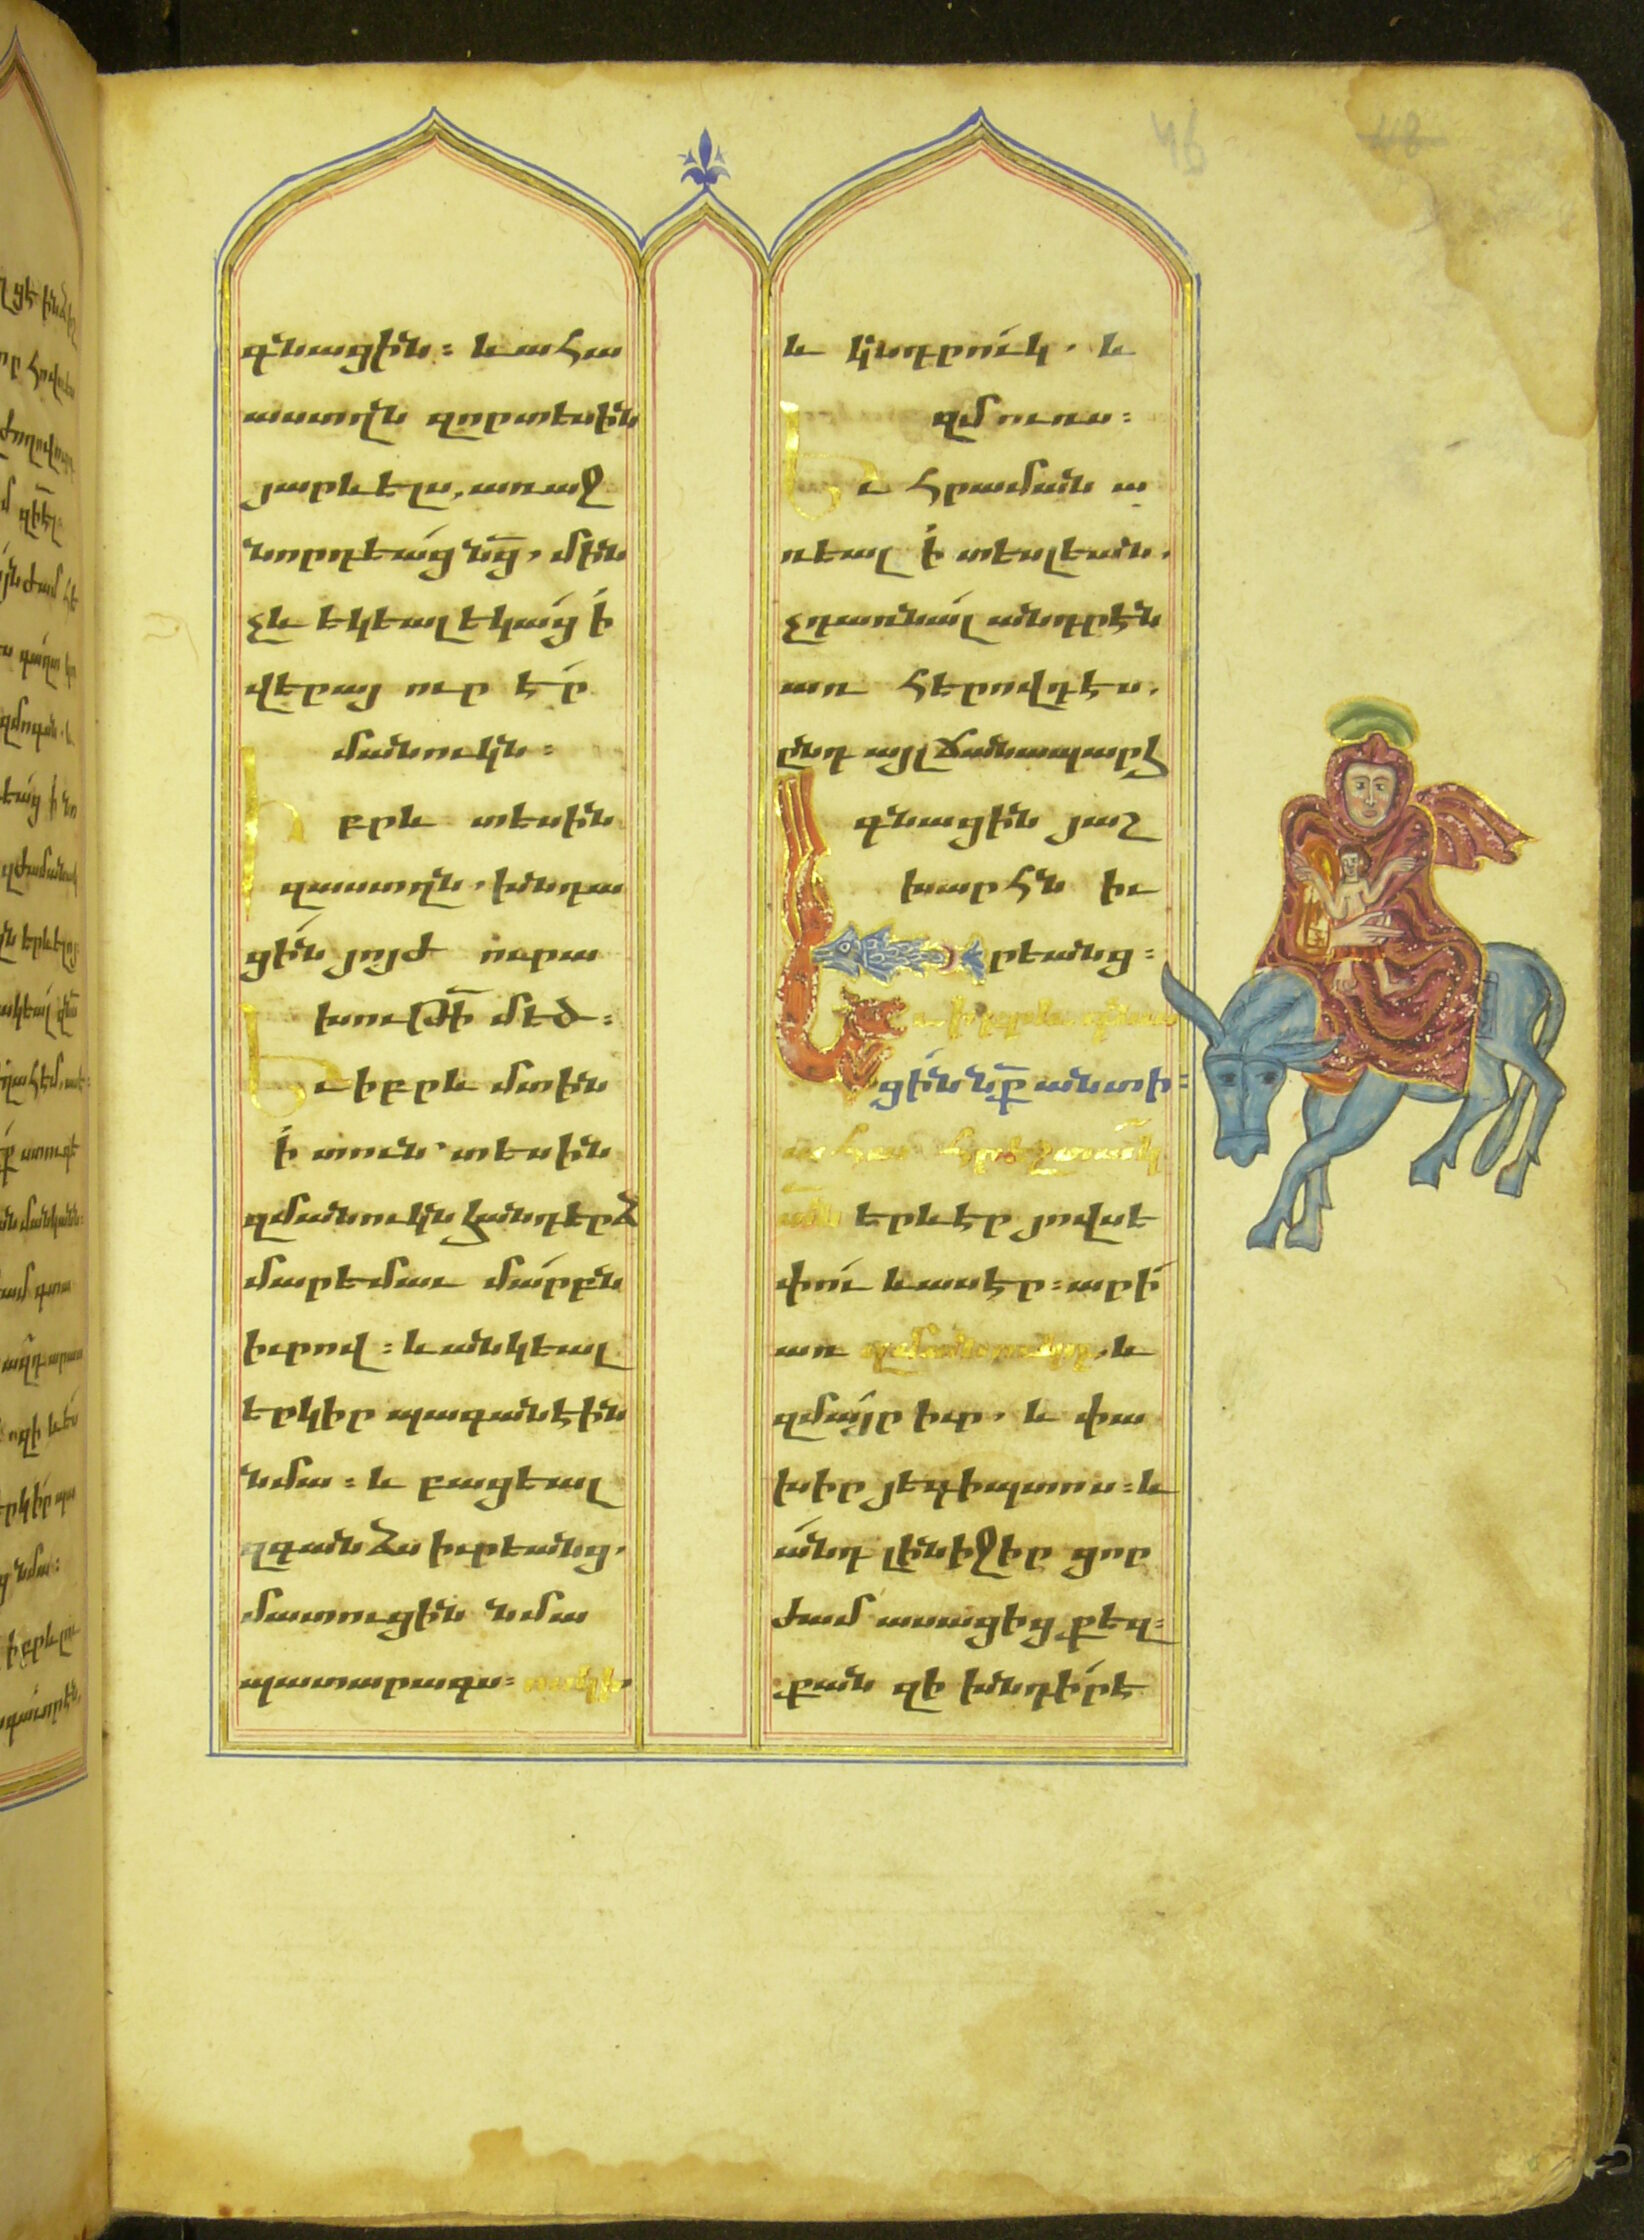 գնացին։ և ահա
աստղն զոր տեսին
յարևելս, առաջ
նորդեաց նց, մին
չև եկեալ եկաց ի
վերայ ուր էր
մանուկն։
Իբրև տեսին
զաստղն, խնդա
ցին յոյժ ուրա
խուլթի մեծ։
Եւ իբրև մտին
ի տուն՝ տեսին
զմանուկն հանդերձ
մարեմաւ մարբն
իւրով։ և անկեալ
երկիր պագանէին
նմա։ և բացեալ
զգանձս իւրեանց,
մատուցին նմա
պատարագս։ ոսկի,
և կնդրուկ, և
զմուռս։
Եւ հրաման ա
ռեալ ի տեսլեան,
չդառնալ անդրէն
առ հերովդէս,
ընդ այլ ճանապարհ
գնացին յաշ
խարհն իւ
րեանց։
Եւ իբրև գնա
ցին նք անտի։
ահա հրեշտակ
տն երևէր յովսե
փու և ասէր։ արի
առ զմանուկդ, և
զմայր իւր, և փա
խիր յեգիպտոս։ և
անդ լինիջիր ցոր
ժամ ասացից քեզ։
քան զի խնդիր է
46
48